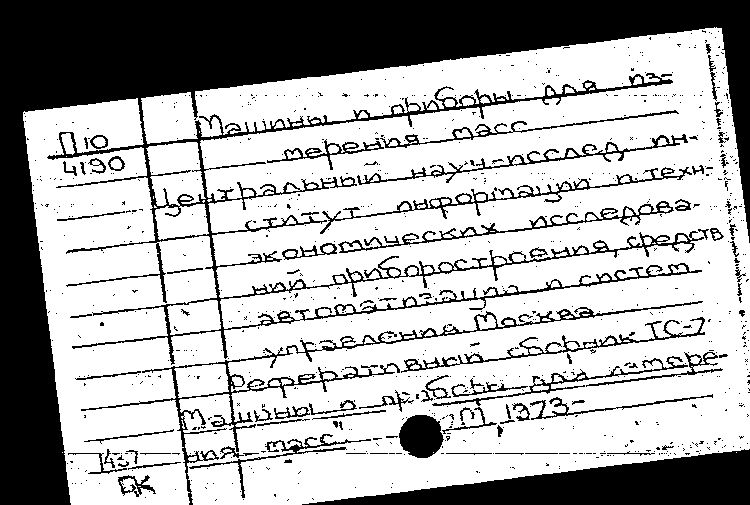 П10
4190
Машины и приборы для из-
мерения масс
Центральный науч-исслед. ин-
ститут информации и техн-
экономических исследова-
ний приборостроения, средств
автоматизации и систем
управления Москва
Реферативный сборник ТС-7
Машины и приборы для измере-
ния масс" М, 1973-
1437
БК